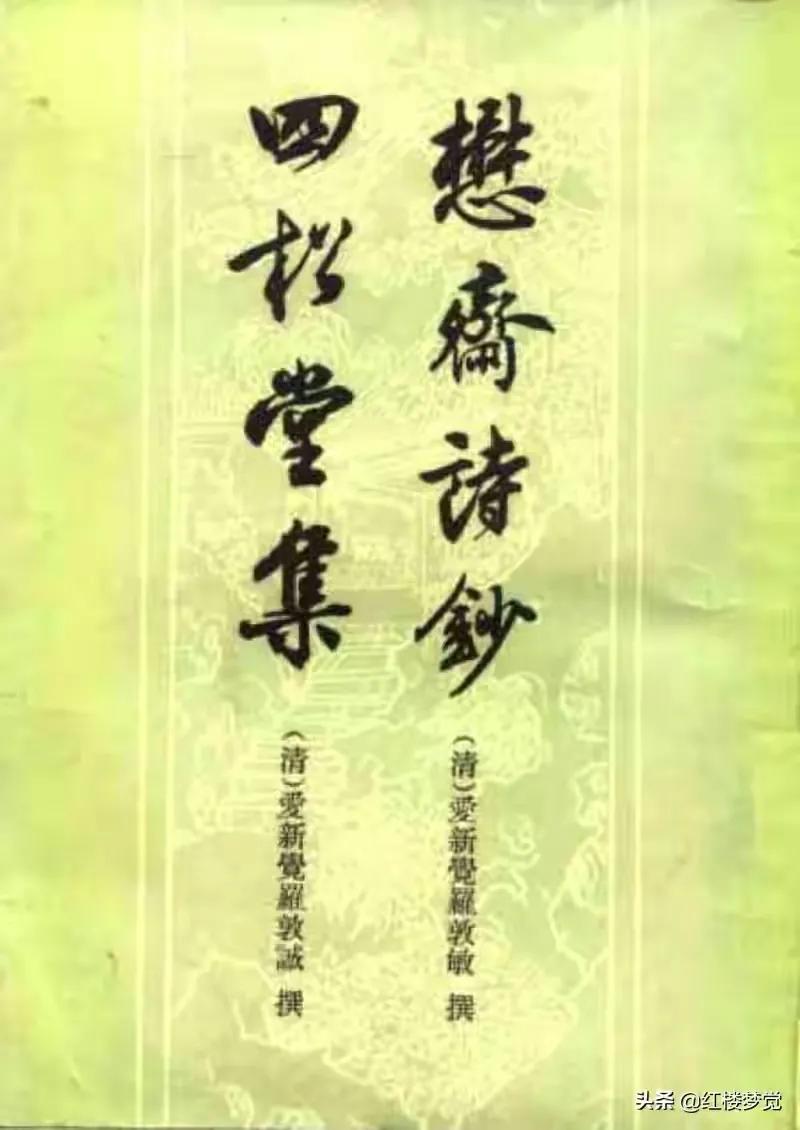 懋齋詩鈔
(清)愛新覺羅敦敏 撰
四松堂集
(清)愛新覺羅敦誠 撰
头条 @红楼梦觉